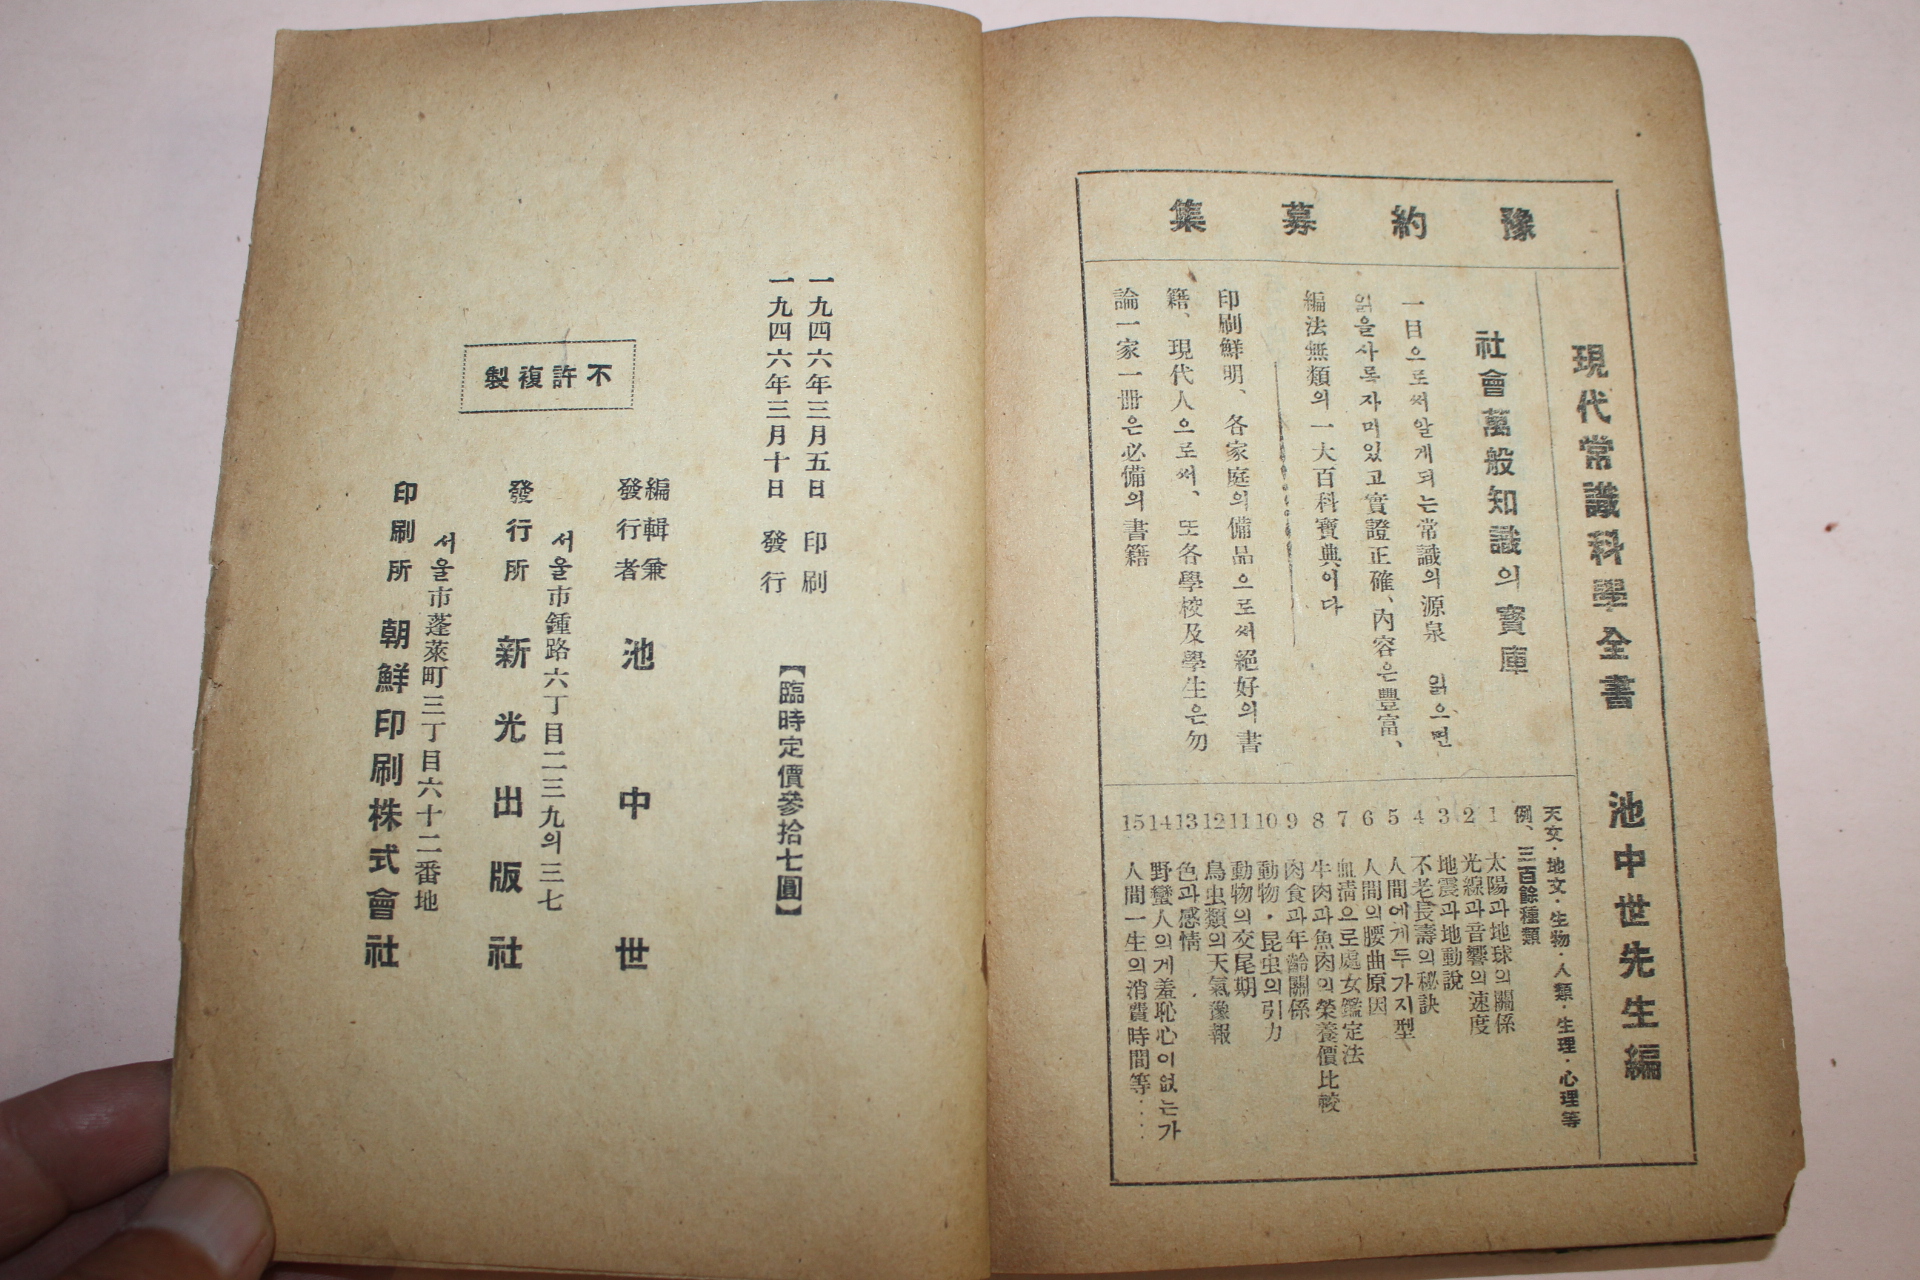 豫約募集
現代常識科學全書 池中世先生編
社會萬般知識의寶庫
一目으로써알게되는常識의源泉 읽으면
읽을사록자미있고實證正確、內容은豐富、
編法無類의一大百科寶典이다
印刷鮮明、各家庭의備品으로써絕好의書
籍、現代人으로써、또各學校及學生은勿
論一家一冊은必備의書籍
天文·地文·生物·人類·生理·心理等
例、三百餘種類
1 太陽과地球의關係
2 光線과音響의速度
3 地震과地動說
4 不老長壽의秘訣
5 人間에게두가지型
6 人間의腰曲原因
7 血淸으로處女鑑定法
8 牛肉과魚肉의榮養價比較
9 肉食과年齡關係
10 動物·昆虫의引力
11 動物의交尾期
12 鳥虫類의天氣豫報
13 色과感情
14 野蠻人의게羞恥心이없는가
15 人間一生의消費時間等‥‥
一九四六年三月五日 印刷
一九四六年三月十日 發行
【臨時定價參拾七圓】
編輯兼
發行者 池中世
서울市鍾路六丁目二三九의三七
發行所 新光出版社
서울市蓬萊町三丁目六十二番地
印刷所 朝鮮印刷株式會社
不許複製